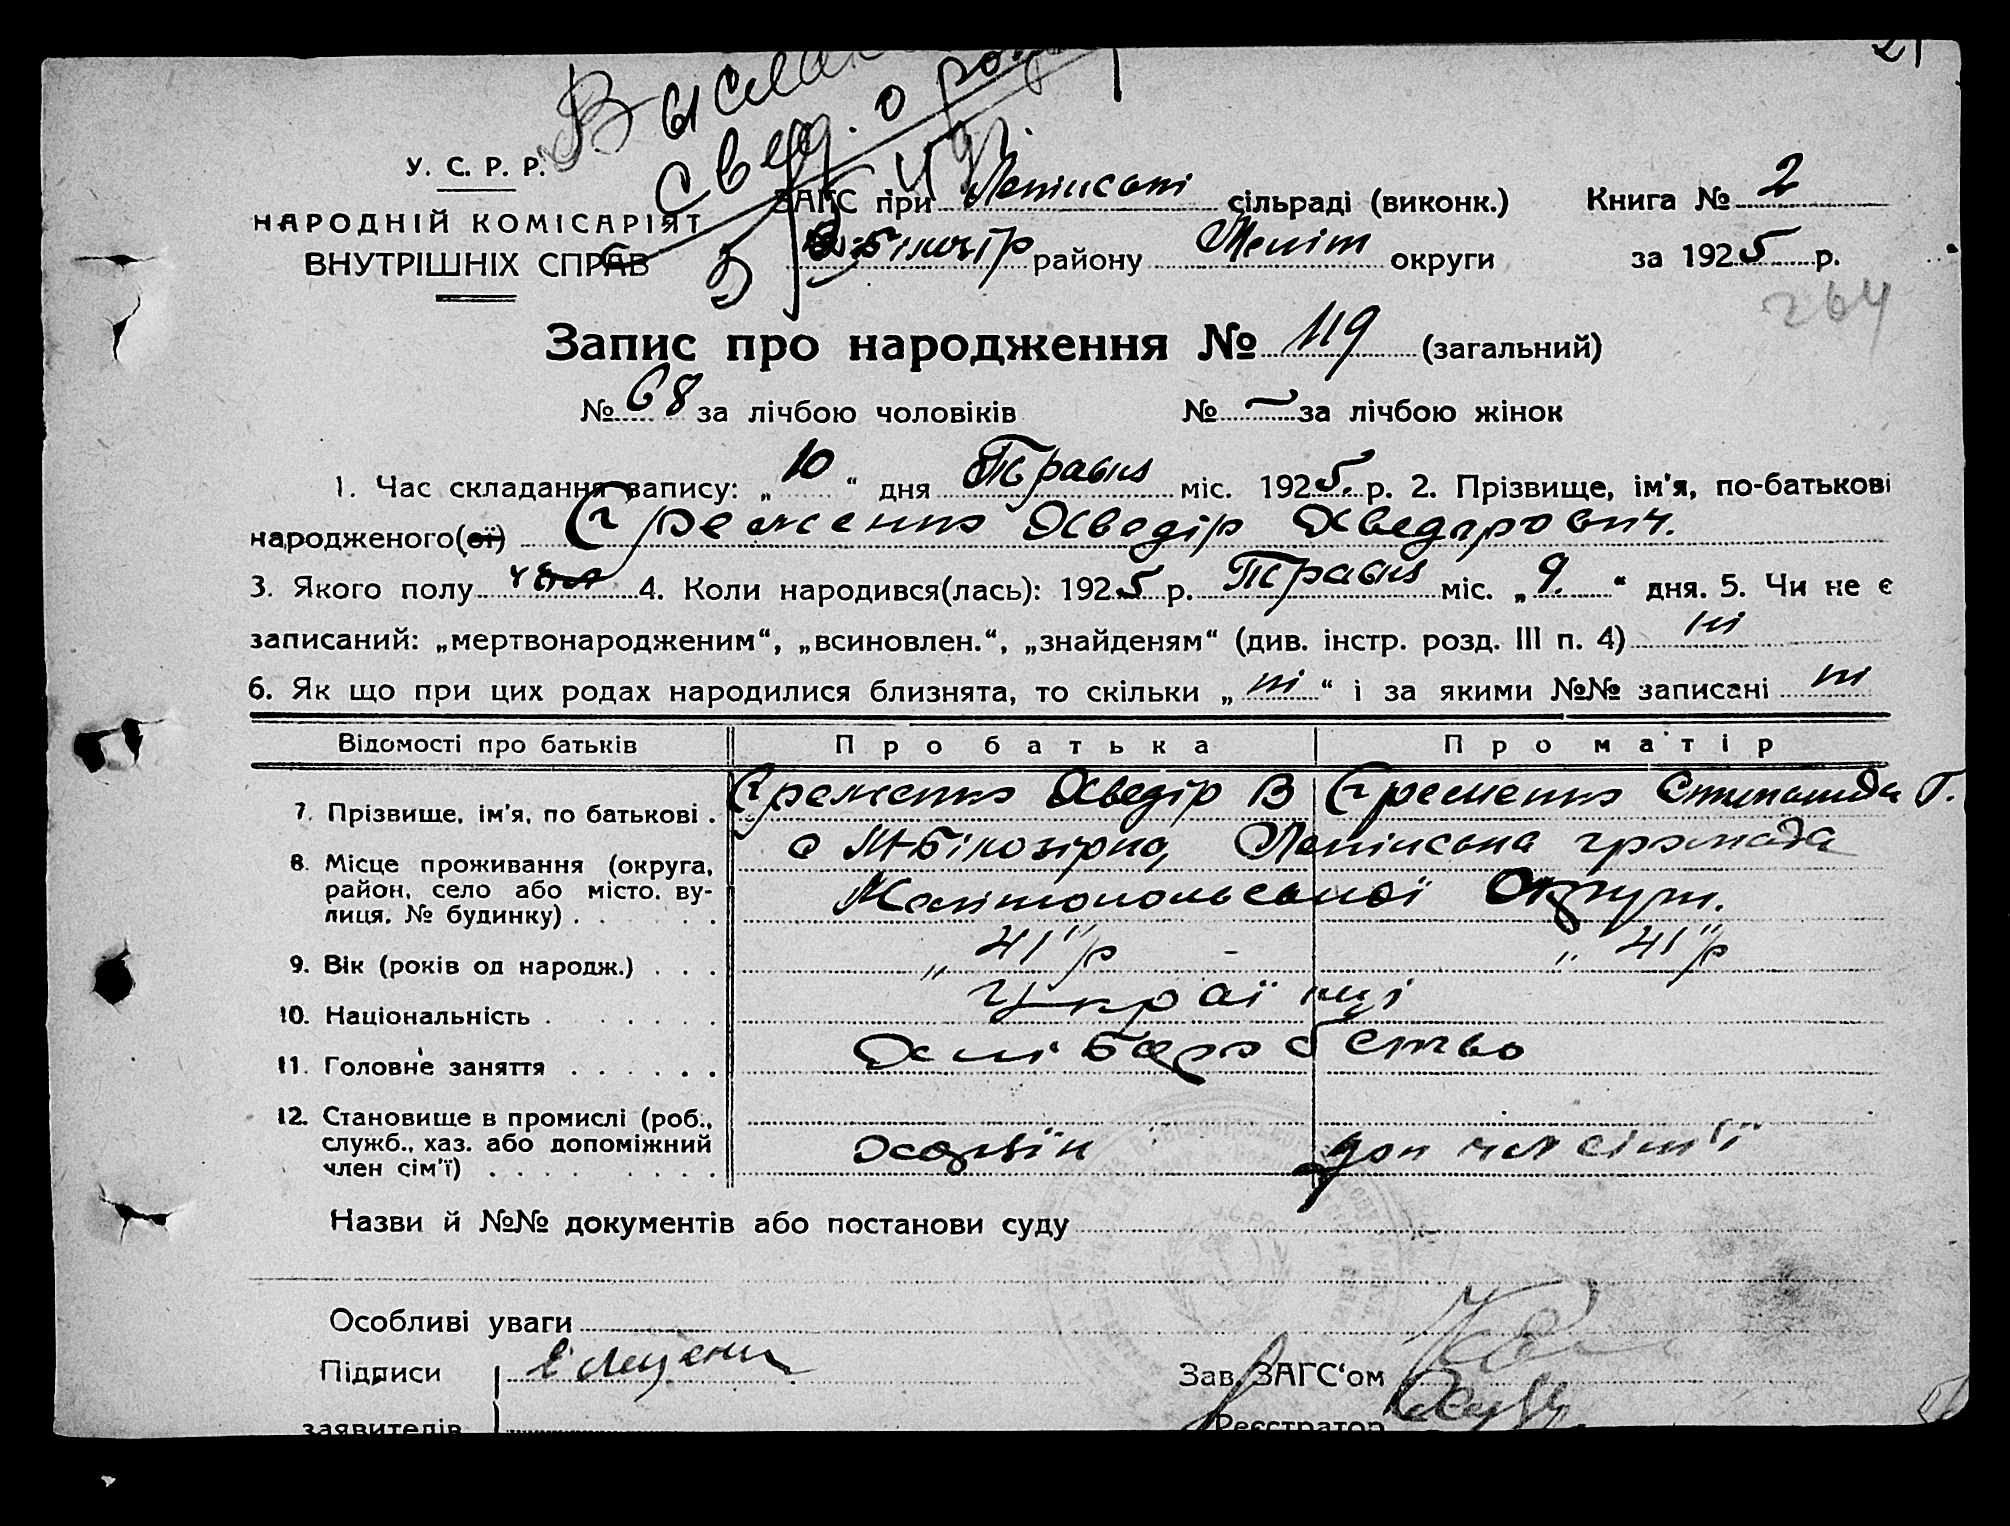 21
Выслано
свед. о рожд
У. С. Р. Р.
НАРОДНІЙ КОМІСАРІЯТ
ВНУТРІШНІХ СПРАВ
ЗАГС при Ленінскій сільраді (виконк.) Книга № 2
Білозір району Меліт округи за 1925 р.
264
Запис про народження № 119 (загальний)
№ 68 за лічбою чоловіків № — за лічбою жінок
1. Час складання запису: „ 10 “ дня Травня міс. 1925 р. 2. Прізвище, ім'я, по-батькові
народженого(ої) Єременко Хведір Хведорович.
3. Якого полу чол 4. Коли народився(лась): 1925 р. Травня міс. „ 9. “ дня. 5. Чи не є
записаний: „мертвонародженим“, „всиновлен.“, „знайденям“ (див. інстр. розд. III п. 4) ні
6. Як що при цих родах народилися близнята, то скільки „ ні “ і за якими №№ записані ні
Відомості про батьків Про батька Про матір
7. Прізвище, ім'я, по батькові . Єременко Хведір В Єременко Степанида Г.
8. Місце проживання (округа, с М-Білозірка, Ленінська громада
район, село або місто, ву- Мелітопольської Округи.
лиця, № будинку) . . . .
9. Вік (років од народж.) . . . „ 41 “ р „ 41 “ р
10. Національність . . . . . . . Українці
11. Головне заняття . . . . . . Хліборобство
12. Становище в промислі (роб.,
служб., хаз. або допоміжний хазяїн доп чл сім'ї
член сім'ї) . . . . . . . .
Назви й №№ документів або постанови суду
Особливі уваги
Підписи Зав. ЗАГС‘ом
заявителів Реєстратор